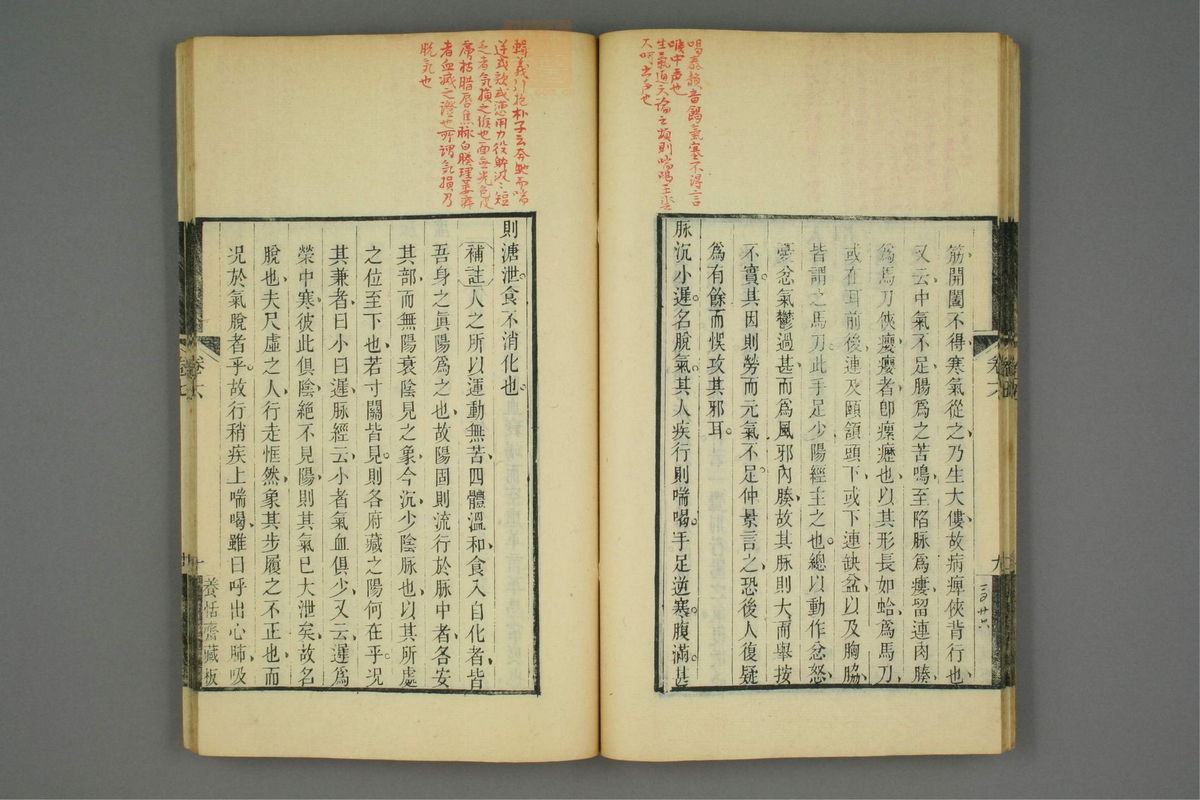 喝泰韻音餲氣塞不得言
喉中声也
生氣通天論云煩則喘喝王氷
大呵出声也
筋開闔不得寒氣從之乃生大僂故病痺俠背行也
又云中氣不足腸爲之苦鳴至陷脉爲瘻留連肉腠
爲馬刀俠癭癭者卽瘰癧也以其形長如蛤爲馬刀
或在耳前後連及頤頷頭下或下連缺盆以及胸脇
皆謂之馬刀此手足少陽經主之也總以動作忿怒
憂忿氣鬱過甚而爲風邪內腠故其脉則大而舉按
不實其因則勞而元氣不足仲景言之恐後人復疑
爲有餘而悞攻其邪耳
脉沉小遲名脫氣其人疾行則喘喝手足逆寒腹滿甚
卷六
九
輯義引抱朴子云奔馳而喘
逆或欬或懣用力役躰汲〻短
乏者気損之候也面無光色皮
膚枯腊唇焦脉白腠理萎瘁
者血減之證也所謂気損乃
脫気也
則溏泄食不消化也
補註人之所以運動無苦四體溫和食入自化者皆
吾身之眞陽爲之也故陽固則流行於脉中者各安
其部而無陽衰陰見之象今沉少陰脉也以其所處
之位至下也若寸關皆見則各府藏之陽何在乎況
其兼者曰小曰遲脉經云小者氣血俱少又云遲爲
榮中寒彼此俱陰絕不見陽則其氣已大泄矣故名
脫也夫尺虛之人行走恇然象其步履之不正也而
況於氣脫者乎故行稍疾上喘喝雖曰呼出心肺吸
卷六
十
養恬齋藏板